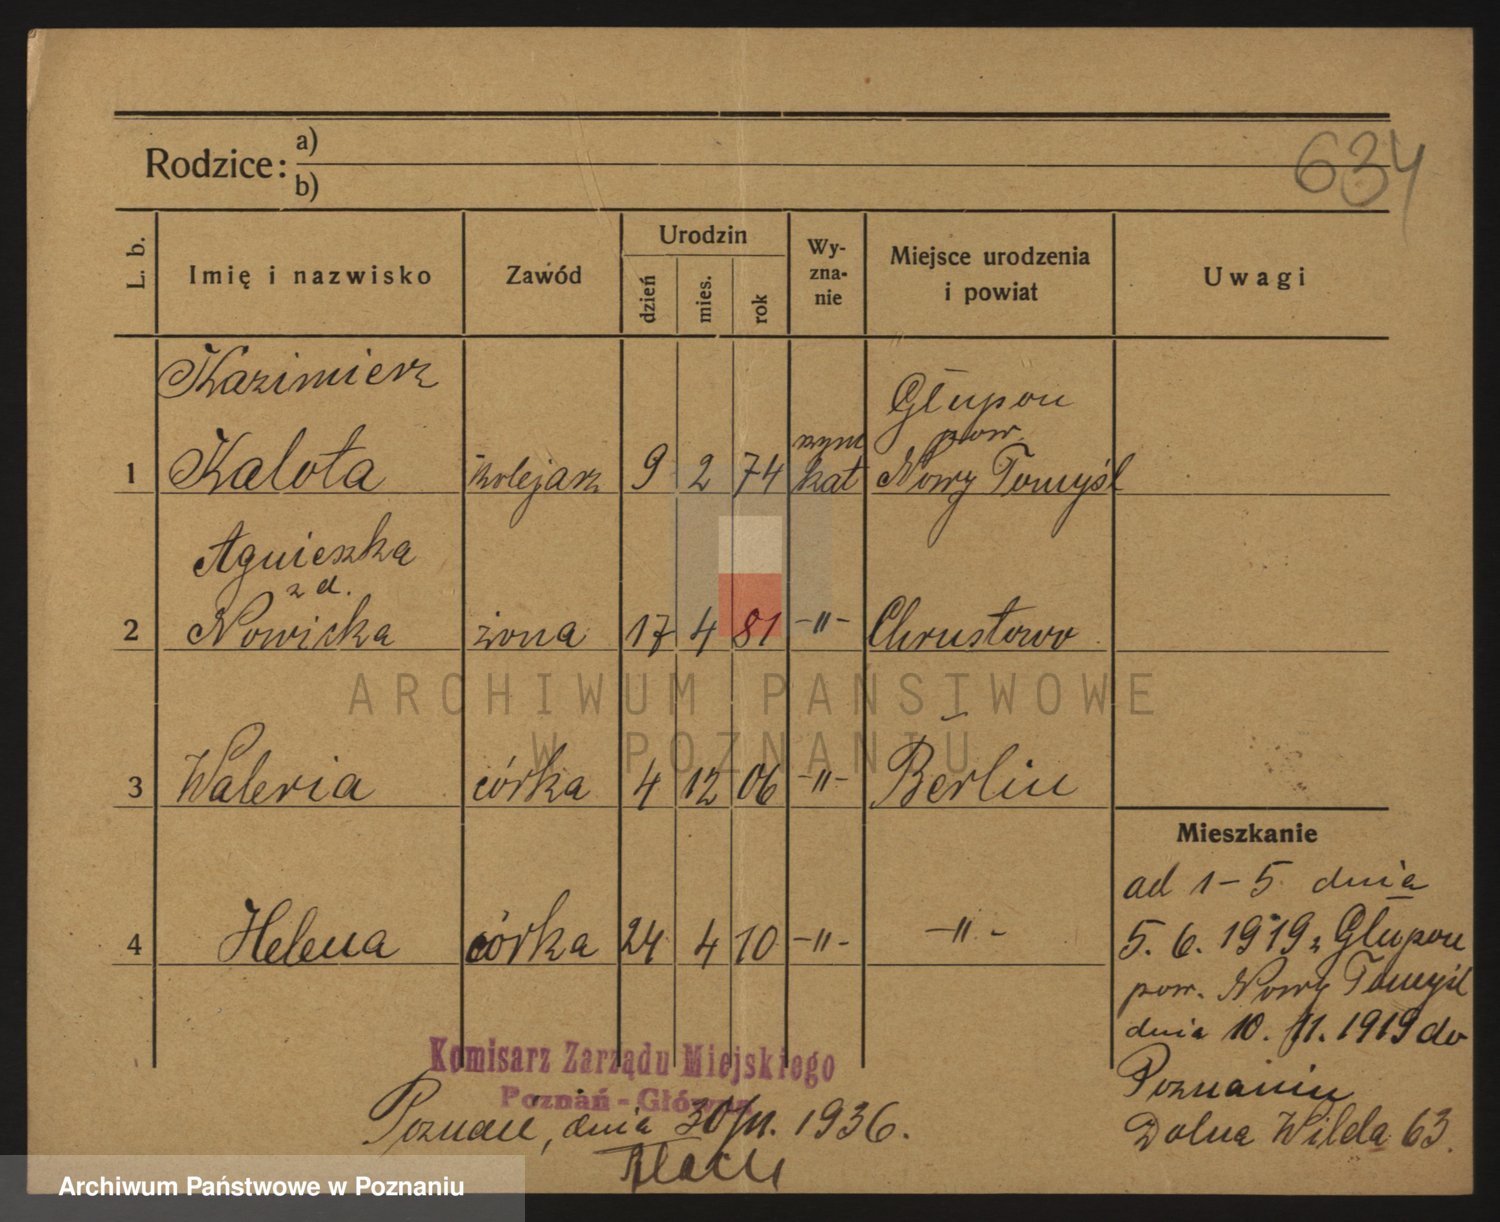 634
Rodzice:
a)
b)
L. b.
Imię i nazwisko
Zawód
Urodzin
dzień
mies.
rok
Wy-
zna-
nie
Miejsce urodzenia
i powiat
Uwagi
Kazimierz
1 Kalota kolejarz 9 2 74 rzym kat Głupoń pow. Nowy Tomyśl
Agnieszka
z d.
2 Nowicka żona 17 4 81 -"- Chrustowo
3 Waleria córka 4 12 06 -"- Berlin
4 Helena córka 24 4 10 -"- -"-
Mieszkanie
od 1-5 dnia
5. 6. 1919 z Głupoń
pow. Nowy Tomyśl
dnia 10. 11. 1919 do
Poznaniu
Dolna Wilda 63.
Komisarz Zarządu Miejskiego
Poznań-Główna
Poznań, dnia 30/11. 1936.
ARCHIWUM PAŃSTWOWE
W POZNANIU
Archiwum Państwowe w Poznaniu